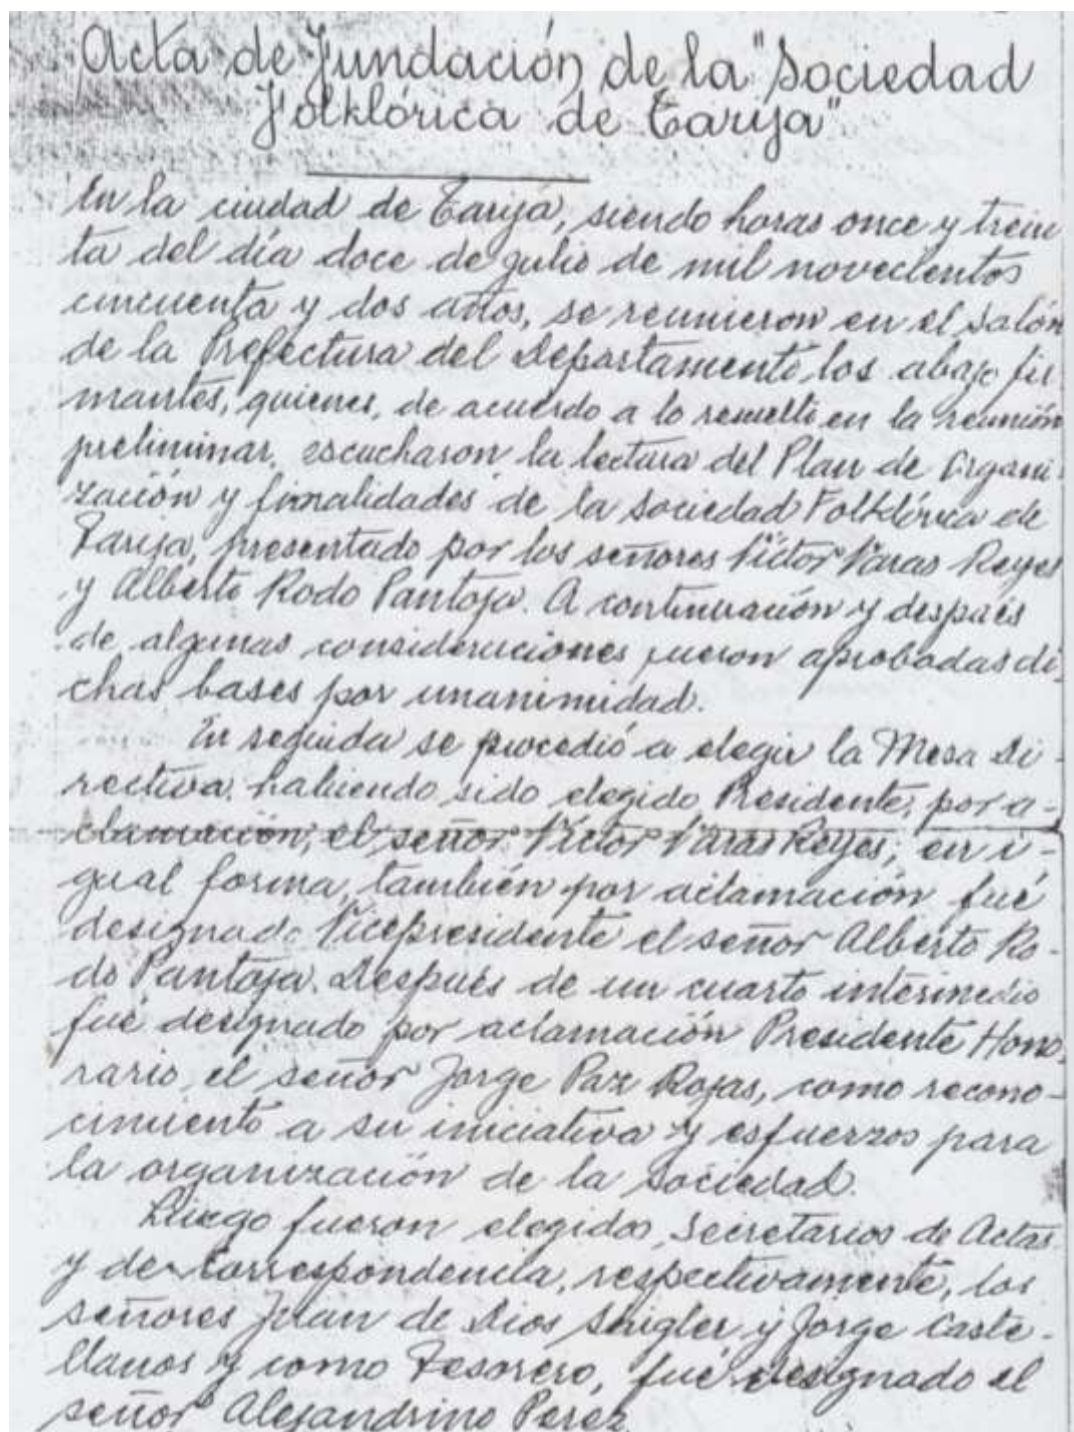 Acta de Fundación de la "Sociedad
Folklórica de Tarija"
En la ciudad de Tarija, siendo horas once y trein
ta del día doce de julio de mil novecientos
cincuenta y dos años, se reunieron en el salón
de la Prefectura del Departamento, los abajo fir
mantes, quienes, de acuerdo a lo resuelto en la reunión
preliminar, escucharon la lectura del Plan de Organi
zación y finalidades de la Sociedad Folklórica de
Tarija, presentado por los señores Víctor Varas Reyes
y Alberto Rodo Pantoja. A continuación y después
de algunas consideraciones fueron aprobadas di-
chas bases por unanimidad.
En seguida se procedió a elegir la Mesa Di-
rectiva, habiendo sido elegido Presidente, por a-
clamación, el señor Víctor Varas Reyes; en i-
gual forma, también por aclamación fué
designado Vicepresidente el señor Alberto Ro-
do Pantoja. Después de un cuarto intermedio
fué designado por aclamación Presidente Hono-
rario, el señor Jorge Paz Rojas, como recono-
cimiento a su iniciativa y esfuerzos para
la organización de la Sociedad.
Luego fueron elegidos, Secretarios de Actas
y de Correspondencia, respectivamente, los
señores Juan de Dios Shigler y Jorge Caste-
llanos y como Tesorero, fué designado el
señor Alejandrino Perez.